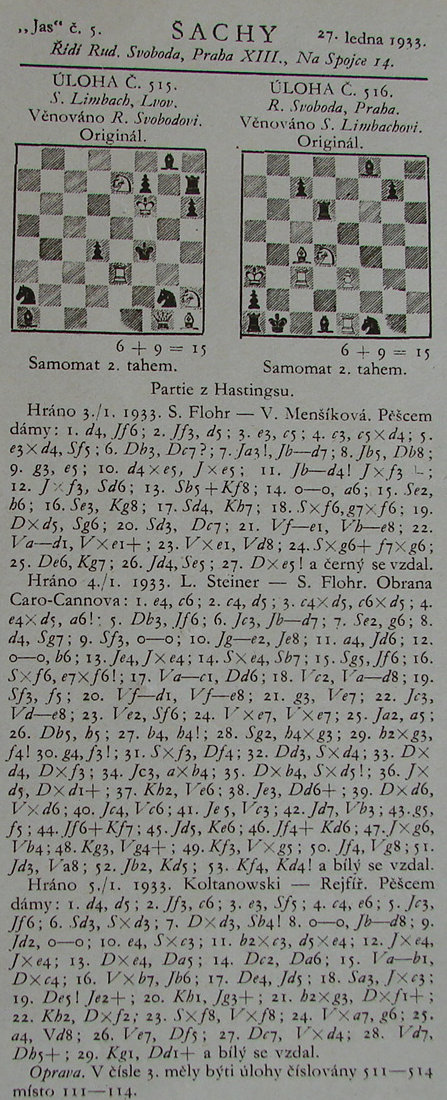 „Jas" č. 5. ŠACHY 27. ledna 1933.
Řídí Rud. Svoboda, Praha XIII., Na Spojce 14.
ÚLOHA Č. 515.
S. Limbach, Lvov.
Věnováno R. Svobodovi.
Originál.
6 + 9 = 15
Samomat 2. tahem.
ÚLOHA Č. 516.
R. Svoboda, Praha.
Věnováno S. Limbachovi.
Originál.
6 + 9 = 15
Samomat 2. tahem.
Partie z Hastingsu.
Hráno 3./1. 1933. S. Flohr — V. Menšíková. Pěšcem
dámy: 1. d4, Jf6; 2. Jf3, d5; 3. e3, c5; 4. c3, c5×d4; 5.
e3×d4, Sf5; 6. Db3, Dc7?; 7. Ja3!, Jb—d7; 8. Jb5, Db8;
9. g3, e5; 10. d4×e5, J×e5; 11. Jb—d4! J×f3
12. J×f3, Sd6; 13. Sb5+Kf8; 14. o—o, a6; 15. Se2,
h6; 16. Se3, Kg8; 17. Sd4, Kh7; 18. S×f6,g7×f6; 19.
D×d5, Sg6; 20. Sd3, Dc7; 21. Vf—e1, Vh—e8; 22.
Va—d1, V×e1+; 23. V×e1, Vd8; 24. S×g6+ f7×g6;
25. De6, Kg7; 26. Jd4, Se5; 27. D×e5! a černý se vzdal.
Hráno 4./1. 1933. L. Steiner — S. Flohr. Obrana
Caro-Cannova: 1. e4, c6; 2. c4, d5; 3. c4×d5, c6×d5; 4.
e4×d5, a6!; 5. Db3, Jf6; 6. Jc3, Jb—d7; 7. Se2, g6; 8.
d4, Sg7; 9. Sf3, o—o; 10. Jg—e2, Je8; 11. a4, Jd6; 12.
o—o, b6; 13. Je4, J×e4; 14. S×e4, Sb7; 15. Sg5, Jf6; 16.
S×f6, e7×f6!; 17. Va—c1, Dd6; 18. Vc2, Va—d8; 19.
Sf3, f5; 20. Vf—d1, Vf—e8; 21. g3, Ve7; 22. Jc3,
Vd—e8; 23. Ve2, Sf6; 24. V×e7, V×e7; 25. Ja2, a5;
26. Db5, h5; 27. b4, h4!; 28. Sg2, h4×g3; 29. h2×g3,
f4! 30. g4, f3!; 31. S×f3, Df4; 32. Dd3, S×d4; 33. D×
d4, D×f3; 34. Jc3, a×b4; 35. D×b4, S×d5!; 36. J×
d5, D×d1+; 37. Kh2, Ve6; 38. Je3, Dd6+; 39. D×d6,
V×d6; 40. Jc4, Vc6; 41. Je5, Vc3; 42. Jd7, Vb3; 43. g5,
f5; 44. Jf6+Kf7; 45. Jd5, Ke6; 46. Jf4+ Kd6; 47. J×g6,
Vb4; 48. Kg3, Vg4+; 49. Kf3, V×g5; 50. Jf4, Vg8; 51.
Jd3, Va8; 52. Jb2, Kd5; 53. Kf4, Kd4! a bílý se vzdal.
Hráno 5./1. 1933. Koltanowski — Rejfíř. Pěšcem
dámy: 1. d4, d5; 2. Jf3, c6; 3. e3, Sf5; 4. c4, e6; 5. Jc3,
Jf6; 6. Sd3, S×d3; 7. D×d3, Sb4! 8. o—o, Jb—d8; 9.
Jd2, o—o; 10. e4, S×c3; 11. b2×c3, d5×e4; 12. J×e4,
J×e4; 13. D×e4, Da5; 14. Dc2, Da6; 15. Va—b1,
D×c4; 16. V×b7, Jb6; 17. De4, Jd5; 18. Sa3, J×c3;
19. De5! Je2+; 20. Kh1, Jg3+; 21. h2×g3, D×f1+;
22. Kh2, D×f2; 23. S×f8, V×f8; 24. V×a7, g6; 25.
a4, Vd8; 26. Ve7, Df5; 27. Dc7, V×d4; 28. Vd7,
Dh5+; 29. Kg1, Dd1+ a bílý se vzdal.
Oprava. V čísle 3. měly býti úlohy číslovány 511—514
místo 111—114.